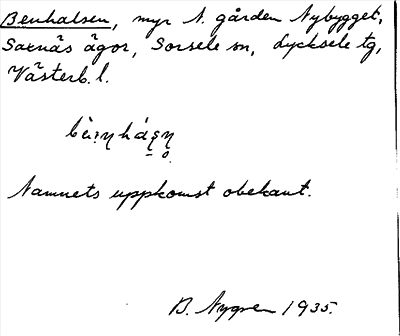 Benhalsen, myr N. gården Nybygget,
Saxnäs ägor, Sorsele sn, Lycksele tg,
Västerb. l.
Namnets uppkomst obekant.
B. Nygren 1935.